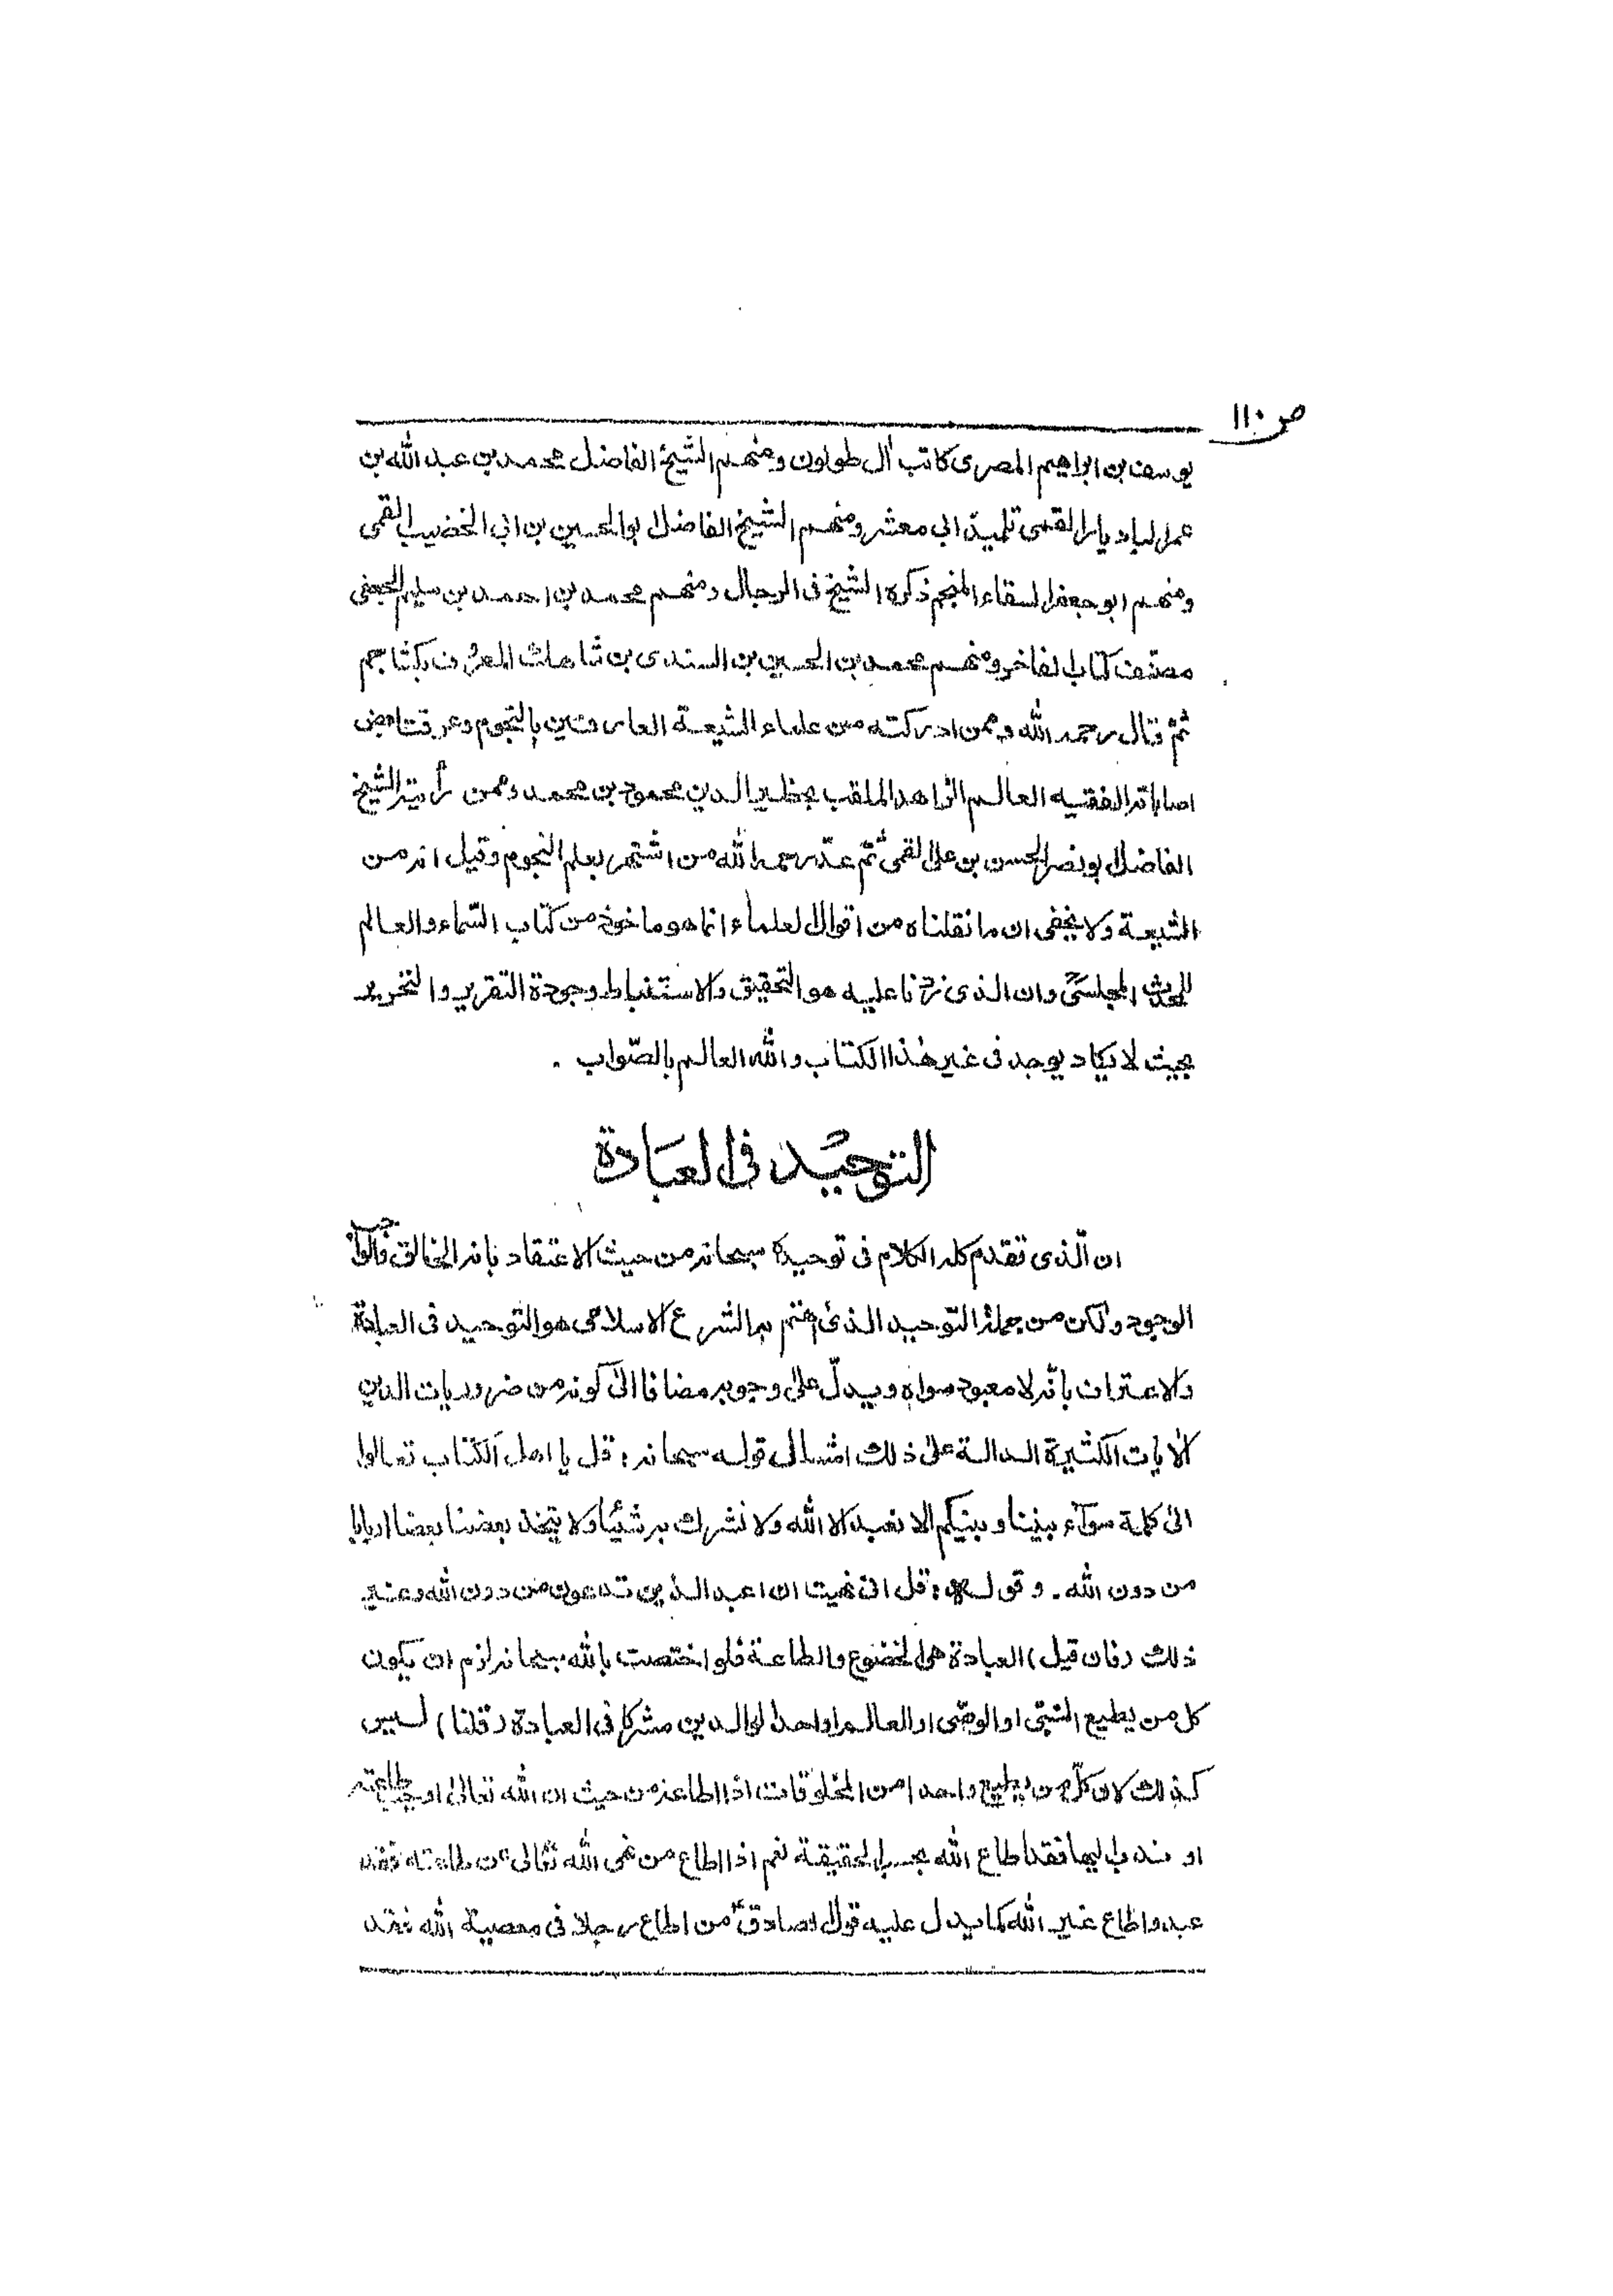 ص ١١٠
يوسف بن ابراهيم المصرى كاتب آل طولون ومنهم الشيخ الفاضل محمد بن عبد الله بن
عمر البازيار القمى تلميذ ابى معشر ومنهم الشيخ الفاضل ابو الحسين بن ابى الخضيب القمى
ومنهم ابو جعفر السقاء المنجم ذكره الشيخ فى الرجال ومنهم محمد بن احمد بن سليم الجعفى
مصنف كتاب الفاخر ومنهم محمد بن الحسين بن السندى بن شاهك المعروف بكشاجم
ثم قال رحمه الله وممن ادركته من علماء الشيعة العارفين بالنجوم وعرفت بعض
اصاباته الفقيه العالم الزاهد الملقب بخطير الدين محمود بن محمد وممن رأيته الشيخ
الفاضل ابو نصر الحسن بن على القمى ثم عدّ رحمه الله من اشتهر بعلم النجوم وقيل انه من
الشيعة ولا يخفى ان ما نقلناه من اقوال العلماء انما هو ماخوذ من كتاب السّماء والعالم
للمحدث المجلسىّ وان الذى زدنا عليه هو التحقيق والاستنباط وجودة التقرير والتحرير
بحيث لا يكاد يوجد فى غير هٰذا الكتاب والله العالم بالصّواب .
التوحيد فى العبادة
ان الّذى تقدم كله الكلام فى توحيده سبحانه من حيث الاعتقاد بانه الخالق والواجب
الوجود ولكن من جملة التّوحيد الذى اهتم به الشرع الاسلامى هو التوحيد فى العبادة
والاعتراف بانّه لا معبود سواه ويدلّ على وجوبه مضافا الى كونه من ضروريات الدين
الآيات الكثيرة الدالة على ذلك امثال قوله سبحانه : قل يا اهل الكتاب تعالوا
الى كلمة سوآء بيننا وبينكم الا نعبد الا الله ولا نشرك به شيئا ولا يتخذ بعضنا بعضا اربابا
من دون الله . وقوله : قل انى نهيت ان اعبد الذين تدعون من دون الله وغير
ذلك (فان قيل) العبادة هى الخضوع والطاعة فلو اختصت بالله سبحانه لزم ان يكون
كل من يطيع النبىّ او الوصّى او العالم او احد الوالدين مشركا فى العبادة (قلنا) ليس
كذلك لان كلّ من يطيع واحدا من المخلوقات اذا اطاعه من حيث ان الله تعالى اوجب طاعته
او ندب اليها فقد اطاع الله بحسب الحقيقة نعم اذا اطاع من نهى الله تعالى عن طاعته فقد
عبد واطاع غير الله كما يدل عليه قول الصادقؑ من اطاع رجلا فى معصية الله فقد